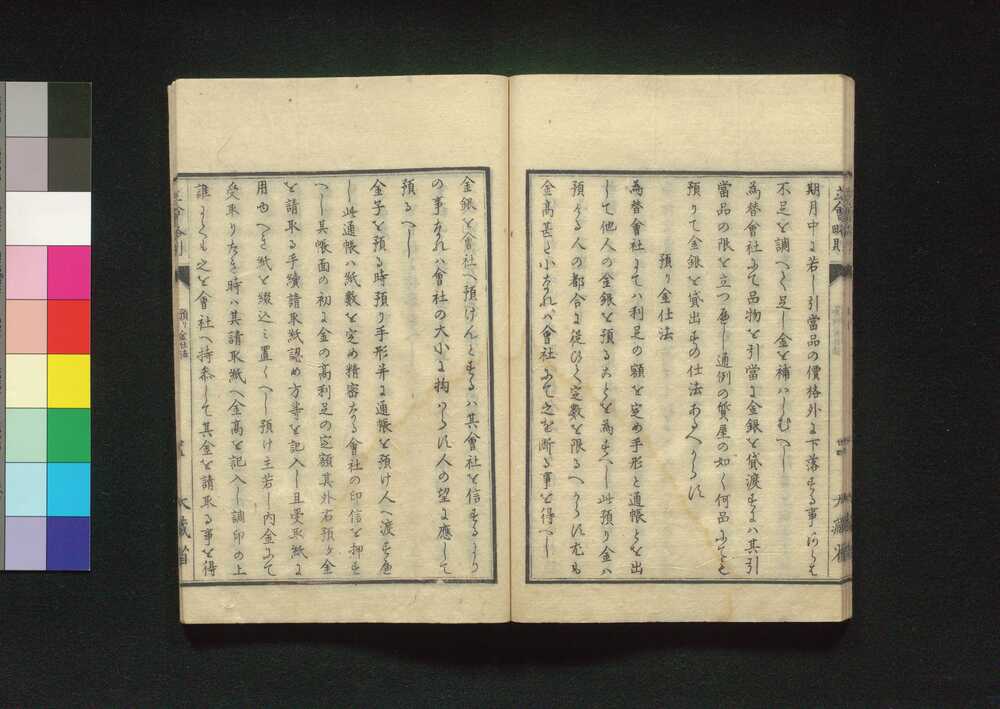 期月中に若し引當品の價格外に下落する事あらは
不足を調へて足し金を補ハしむへし
為替會社にて品物を引當に金銀を貸渡すにハ其引
當品の限を立つ可し通例の質屋の如く何品にても
預りて金銀を貸出すの仕法あるへからす
預り金仕法
為替會社にてハ利足の額を定め手形と通帳とを出
して他人の金銀を預ることを為すへし此預り金ハ
預くる人の都合に従ひて定数を限るへからす尤も
金高甚た小なれハ會社にて之を断る事を得へし
大藏省
金銀を會社へ預けんとするハ其會社を信するより
の事なれハ會社の大小に拘ハらす人の望に應して
預るへし
金子を預る時預り手形并に通帳を預け人へ渡す可
し此通帳ハ紙数を定め精密なる會社の印信を押す
へし其帳面の初に金の高利足の定額其外右預ケ金
を請取る手續請取紙認め方等を記入し且受取紙に
用ゆへき紙を綴込ミ置くへし預け主若し内金にて
受取りたき時ハ其請取紙へ金高を記入し調印の上
誰にても之を會社へ持参して其金を請取る事を得
預り金仕法
大藏省